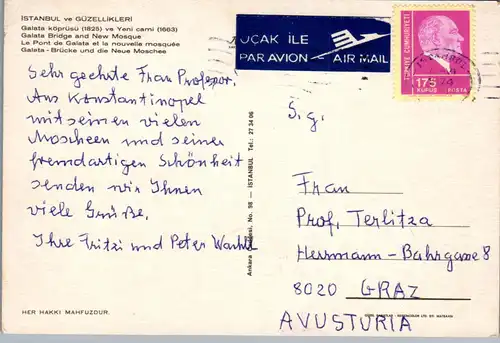 İSTANBUL ve GÜZELLİKLERİ
Galata köprüsü (1825) ve Yeni cami (1663)
Galata Bridge and New Mosque
Le Pont de Galata et la nouvelle mosquée
Galata-Brücke und die Neue Moschee
Sehr geehrte Frau Professor.
Aus Konstantinopel
mit seinen vielen
Moscheen und seiner
fremdartigen Schönheit
senden wir Ihnen
viele Grüße.
Ihre Fritzi und Peter
HER HAKKI MAHFUZDUR.
Ankara Caddesi, No. 98 — İSTANBUL Tel.: 27 34 06
UÇAK İLE
PAR AVION - AIR MAIL
TÜRKİYE CUMHURİYETİ
175
KURUŞ POSTA
S.g.
Frau
Prof. Terlitza
Herrmann-Bahrgasse 8
8020 GRAZ
AVUSTURIA